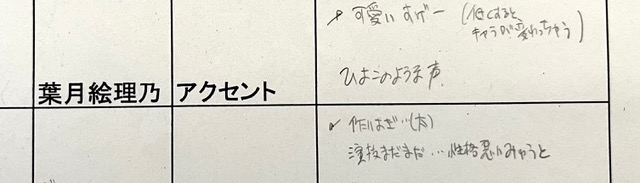 可愛いすげー (低くすると
キャラが変わっちゃう)
ひよこのような声
葉月絵理乃 アクセント
演技まだまだ…性格悪い